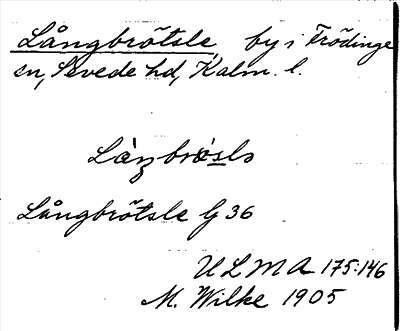 Långbrötsle, by i Frödinge
sn, Sevede hd, Kalm. l.
Långbrötsle G 36
ULMA 175:146
M. Wilke 1905